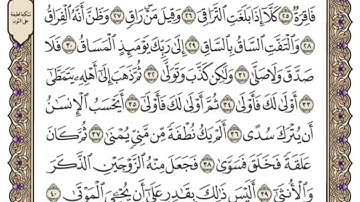 سكتة لطيفة
على النون
فَاقِرَةٌ ۝٢٥ كَلَّا إِذَا بَلَغَتِ التَّرَاقِيَ ۝٢٦ وَقِيلَ مَنْ رَاقٍ ۝٢٧ وَظَنَّ أَنَّهُ الْفِرَاقُ
۝٢٨ وَالْتَفَّتِ السَّاقُ بِالسَّاقِ ۝٢٩ إِلَىٰ رَبِّكَ يَوْمَئِذٍ الْمَسَاقُ ۝٣٠ فَلَا
صَدَّقَ وَلَا صَلَّىٰ ۝٣١ وَلَٰكِنْ كَذَّبَ وَتَوَلَّىٰ ۝٣٢ ثُمَّ ذَهَبَ إِلَىٰ أَهْلِهِ يَتَمَطَّىٰ
۝٣٣ أَوْلَىٰ لَكَ فَأَوْلَىٰ ۝٣٤ ثُمَّ أَوْلَىٰ لَكَ فَأَوْلَىٰ ۝٣٥ أَيَحْسَبُ الْإِنْسَانُ
أَنْ يُتْرَكَ سُدًى ۝٣٦ أَلَمْ يَكُ نُطْفَةً مِنْ مَنِيٍّ يُمْنَىٰ ۝٣٧ ثُمَّ كَانَ
عَلَقَةً فَخَلَقَ فَسَوَّىٰ ۝٣٨ فَجَعَلَ مِنْهُ الزَّوْجَيْنِ الذَّكَرَ
وَالْأُنْثَىٰ ۝٣٩ أَلَيْسَ ذَٰلِكَ بِقَادِرٍ عَلَىٰ أَنْ يُحْيِيَ الْمَوْتَىٰ ۝٤٠